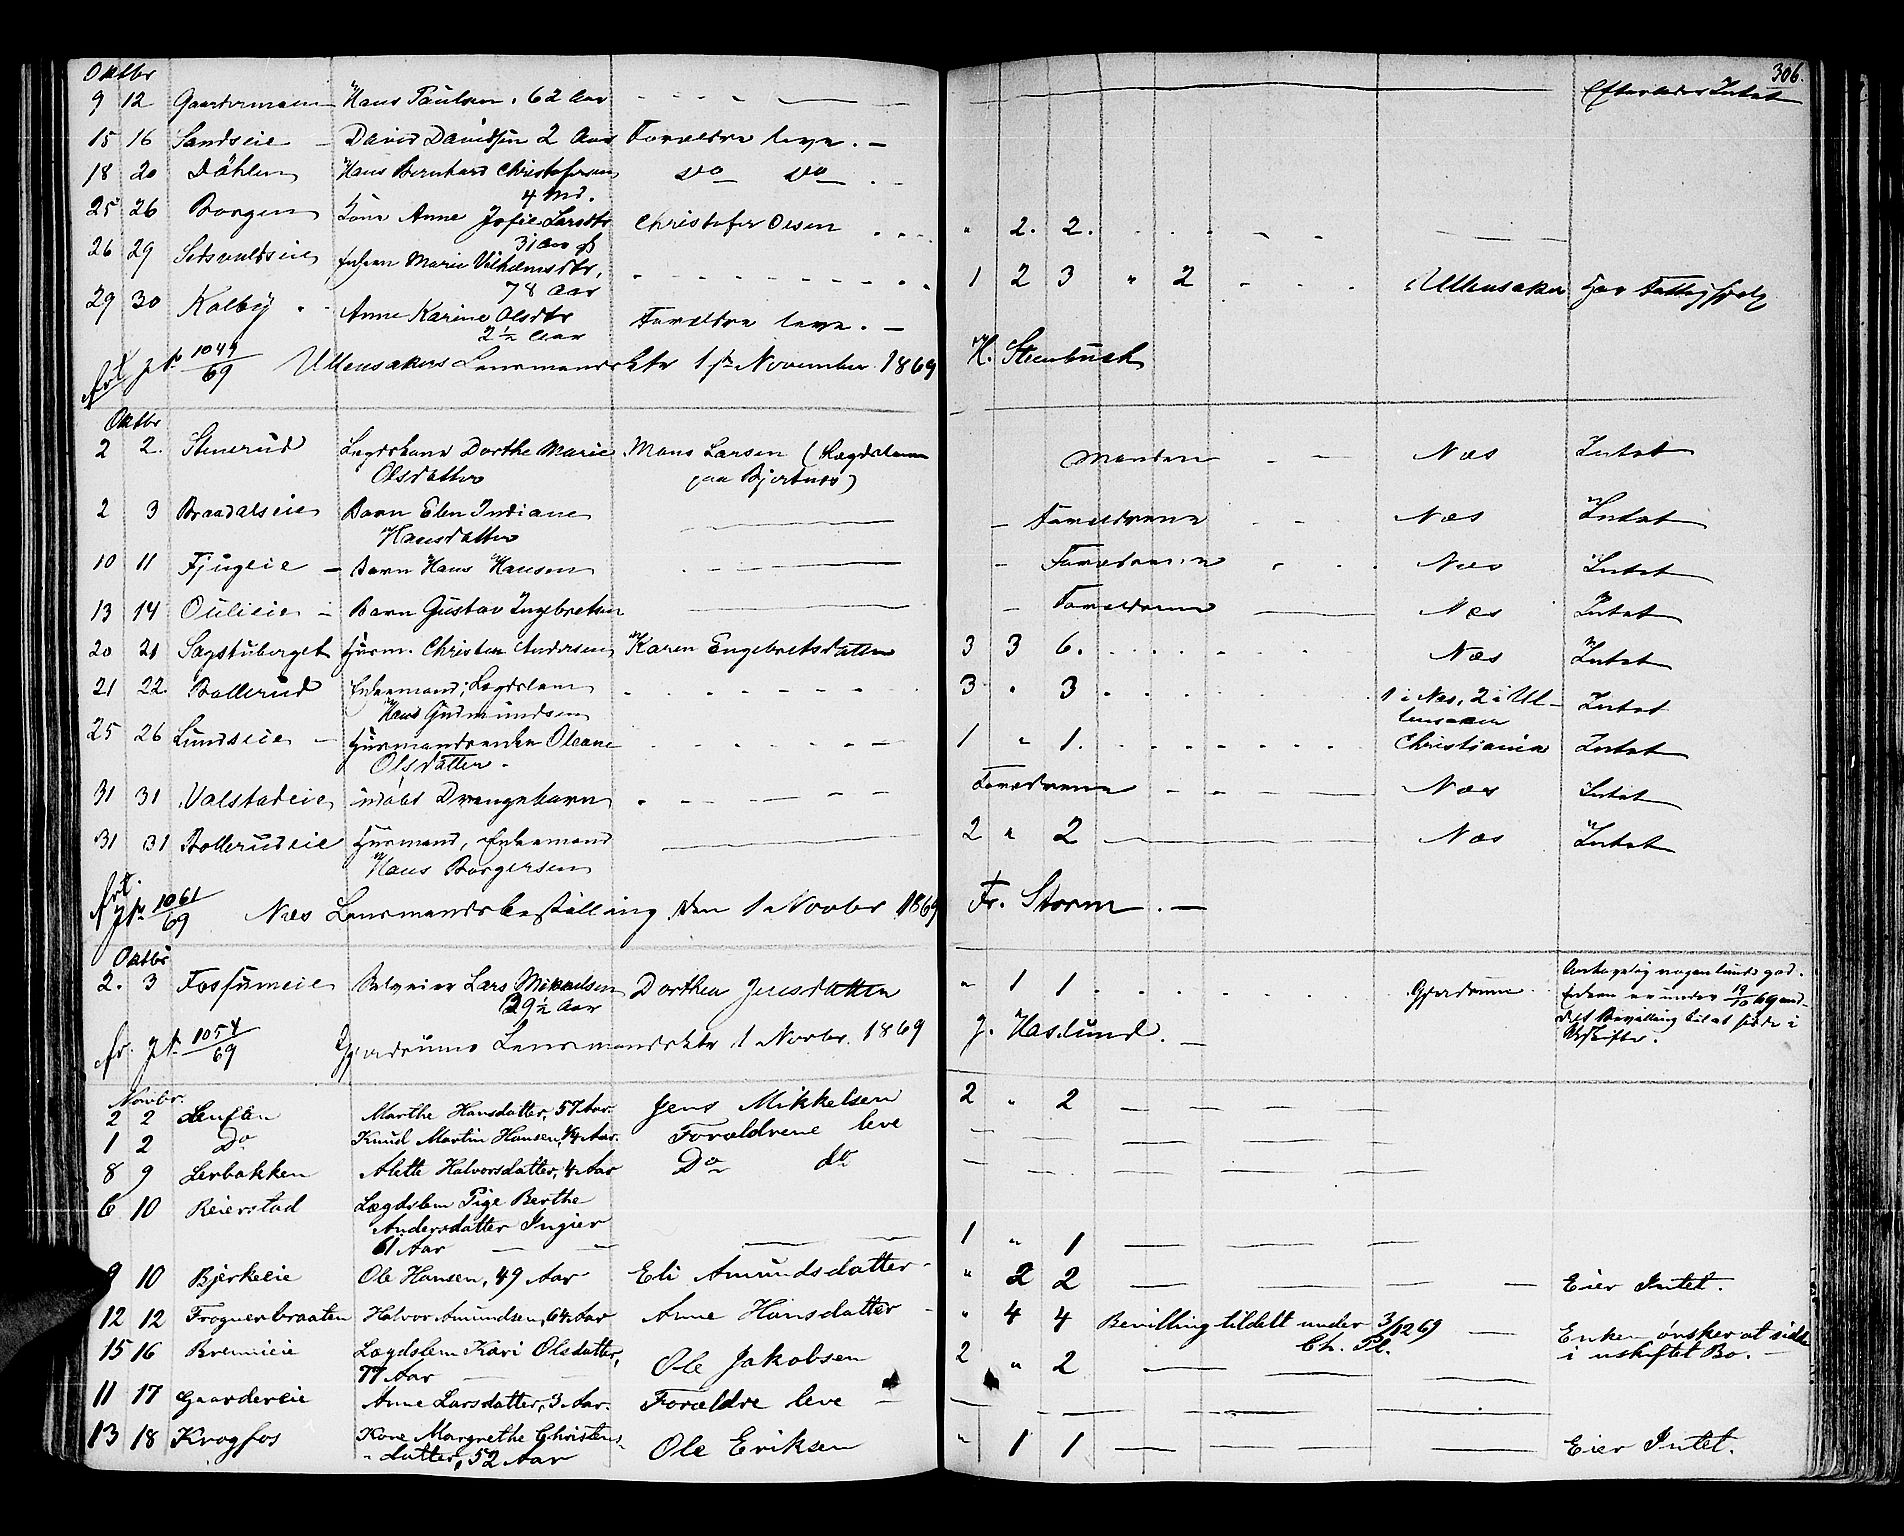 306.
Oktbr
9 12 Gaardermoen Hans Paulsen, 62 Aar — — Efterlader Intet
15 16 Sandseie — David Davidsen 2 Aar Forældre leve. —
18 20 Dåhlen Hans Bernhard Christofersen Do Do
4 Md.
25 26 Borgen Kone Anne Josie Larsdtr Christofer Olsen " 2. 2.
31 Aar
26 29 Enken Marie Vilhelmsdtr, 1 2 3 " 2 Ullensaker
78 Aar
29 30 Kalby Anne Karine Olsdtr Forældre leve. —
2 1/2 Aar
1049/69 Ullensakers Lensmandsktr 1ste November 1869 H. Steenbuch
Oktbr
2 2. Stenerud Lægdskone Dorthe Marie Mons Larsen (Lægdslem Manden — Næs Intet
Olsdatter paa Bjertnes)
2 3 Braadalseie Barn Elen Indiane — Forældrene Næs Intet
Hansdatter
10 11 Fjugeie — Barn Hans Hansen — Forældrene Næs Intet
13 14 Oulieie — Barn Gustav Ingebretsen — Forældrene — Næs Intet
20 21 Sagstuberget Husm. Christen Andersen Karen Engebretsdatter 3 3 6. Næs Intet
21 22. Bollerud Enkemand, Lægdslem 3 " 3 1 i Næs, 2 i Ul-
Hans Gudmundsen lensaker Intet
25 26 Lundseie — Husmandsenke Oleane 1 " 1. Christiania Intet
Olsdatter.
31 31 Valstadeie udöbt Drengebarn Forældrene — Næs Intet
31 31 Bollerudeie Husmand, Enkemand 2 " 2 — Næs Intet
Hans Borgersen
1061/69 Næs Lensmandsbestilling den 1 Novbr 1869 Fr. Storm. —
Oktbr
2. 3 Fosfumeie Lars Mikkelsen Dorthea Jensdatter " 1 1 Gjerdrum
39 1/2 Aar Enken er under 19/10 69 med-
delt Bevilling til at sidde i
1054/69 Gjerdrums Lensmandsktr 1 Novbr. 1869 J. Haslund. —
Novbr.
2 2 Marthe Hansdatter, 57 Aar. Jens Mikkelsen 2 " 2 — — —
1 2 Do Knud Martin Hansen, Aar. Forældrene leve
8 9 Lerbakken Alette Halvorsdatter, 4 Aar Do do
6 10 Reierstad Lægdslem Pige Berthe
Andersdatter Ingier
61 Aar — — 1 " 1 — — —
9 10 Bjerkeeie Ole Hansen, 49 Aar Eli Amundsdatter " 2 2 — — Eier Intet.
12 12 Frognerbraaten Halvor Amundsen, 64 Aar Anne Hansdatter " 4 4 Bevilling tildelt under 3/12 69 — Enken ønsker at sidde
Ch. Pl. i uskiftet Bo. —
15 16 Brennieie Lægdslem Kari Olsdatter, Ole Jakobsen 2 " 2 — — —
77 Aar
11 17 Gaardereie Anne Larsdatter, 3 Aar. Forældre leve —
13 18 Krogfos Kone Margrethe Christens- Ole Eriksen " 1 1 — — — Eier Intet.
datter, 52 Aar